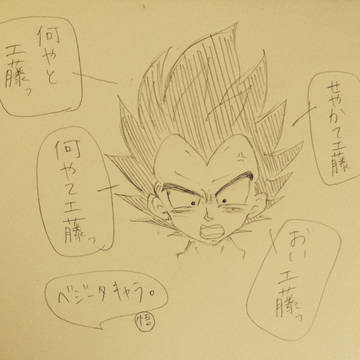 何やと
工藤っ
せやかて工藤
何やて工藤っ
おい工藤っ
ベジータキャラ。
悟